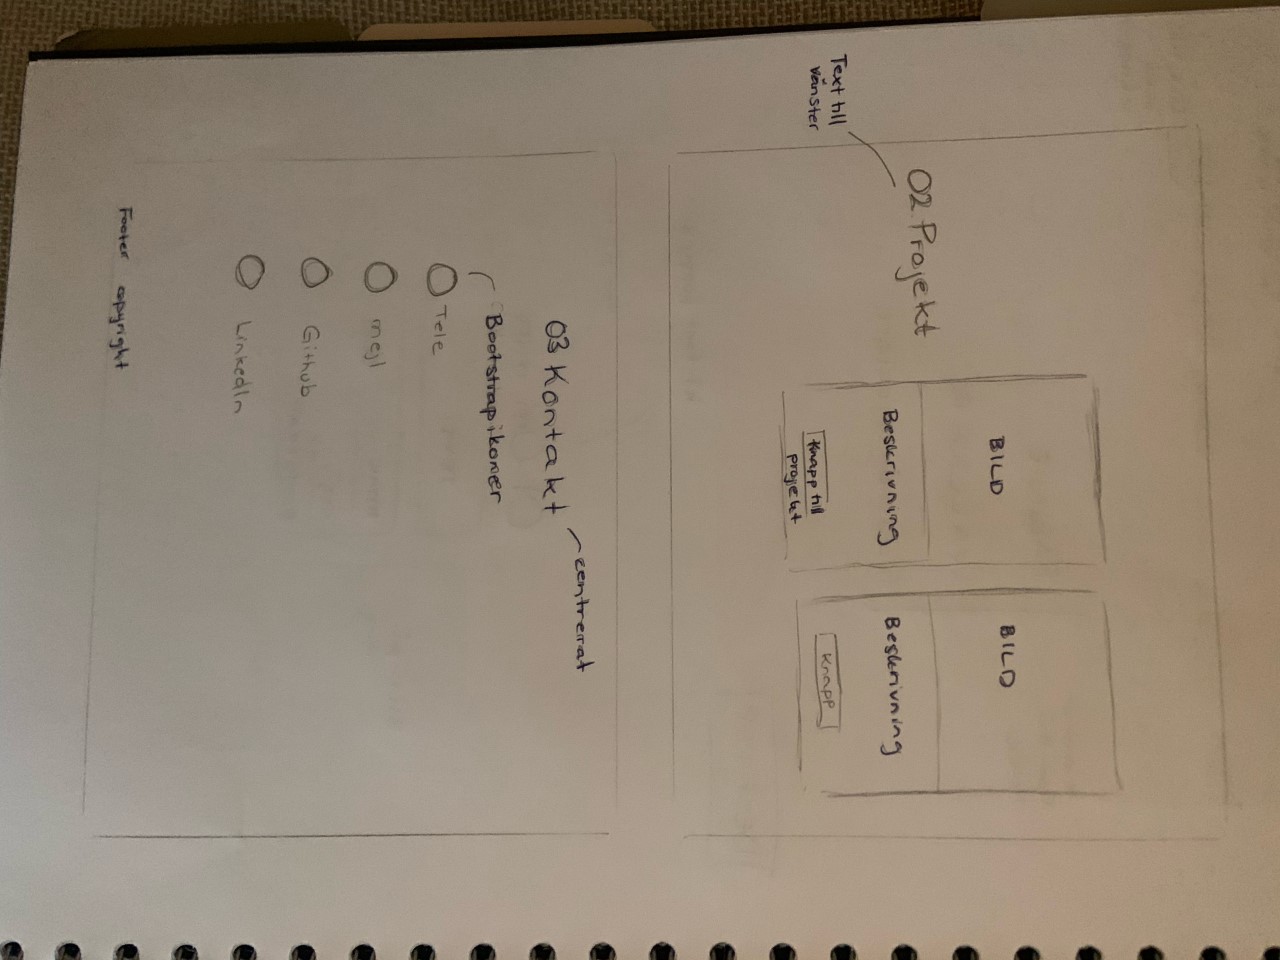 Text till
vänster
02 Projekt
BILD
Beskrivning
Knapp till
projekt
BILD
Beskrivning
Knapp
03 Kontakt
centrerat
Bootstrapikoner
Tele
mejl
Github
LinkedIn
Footer copyright